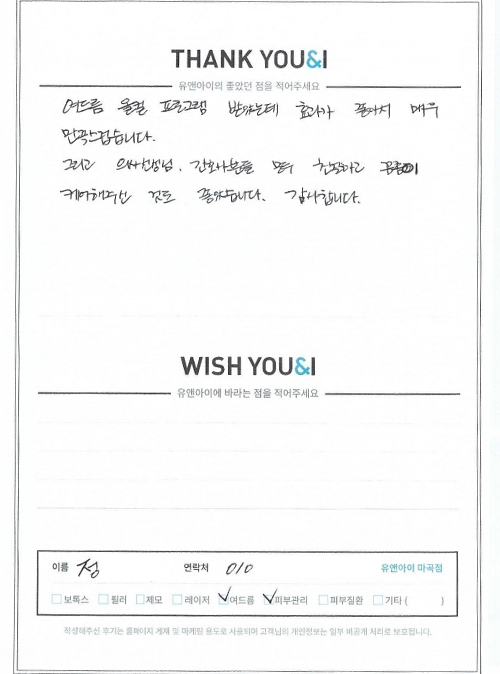 THANK YOU&I
유앤아이의 좋았던 점을 적어주세요
여드름 올킬 프로그램 받았는데 효과가 좋아서 매우
만족스럽습니다.
그리고 의사선생님, 간호사분들 모두 친절하고 꼼꼼히
케어해주신 것도 좋았습니다. 감사합니다.
WISH YOU&I
유앤아이에 바라는 점을 적어주세요
이름 정 연락처 010 유앤아이 마곡점
보톡스 필러 제모 레이저 여드름 피부관리 피부질환 기타 ( )
작성해주신 후기는 홈페이지 게재 및 마케팅 용도로 사용되며 고객님의 개인정보는 일부 비공개 처리로 보호됩니다.